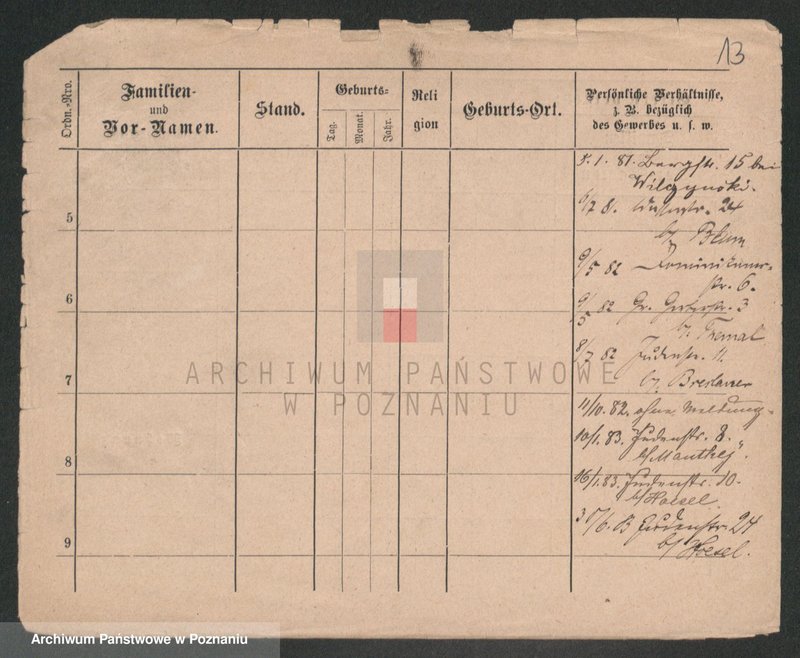 13
Ordn.-Nro.
Familien-
und
Vor-Namen.
Stand.
Geburts-
Tag.
Monat.
Jahr.
Reli
gion
Geburts-Ort.
Persönliche Verhältnisse,
z. B. bezüglich
des Gewerbes u. s. w.
5. 1. 81. Bergstr. 15 bei
Wilczynski.
5
6/7 8. 24
b/ Blum
9/5 82 Dominikaner-
str. 6.
6
9/5 82 Gr. Gerberstr. 3
b/ Fremal
8/7 82 Judenstr. 11.
7
b/ Breslauer
11/10. 82. ohne Meldung.
10/1. 83. Judenstr. 8.
b/ Manthey
8
16/1. 83. Judenstr. 10.
b/ Haesel.
Judenstr. 24
9
b/ Haesel.
ARCHIWUM PAŃSTWOWE
W POZNANIU
Archiwum Państwowe w Poznaniu